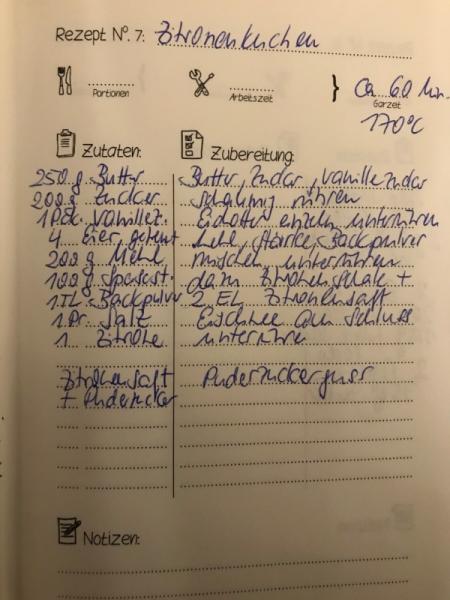 Rezept No. 7: Zitronenkuchen
Portionen
Arbeitszeit
} Ca 60 Min.
Garzeit
170°C
Zutaten:
250 g Butter
200 g Zucker
1 Pck. Vanillez.
4 Eier, getrennt
200 g Mehl
100 g Speisest.
1 TL Backpulver
1 Pr. Salz
1 Zitrone
Zitronensaft
+ Puderzucker
Zubereitung:
Butter, Zucker, Vanillezucker
schaumig rühren
Eidotter einzeln unterrühren
Mehl, Stärke, Backpulver
mischen unterrühren
dazu Zitronenschale +
2 EL Zitronensaft
Eischnee am Schluss
unterrühren
Puderzuckerguss
Notizen: